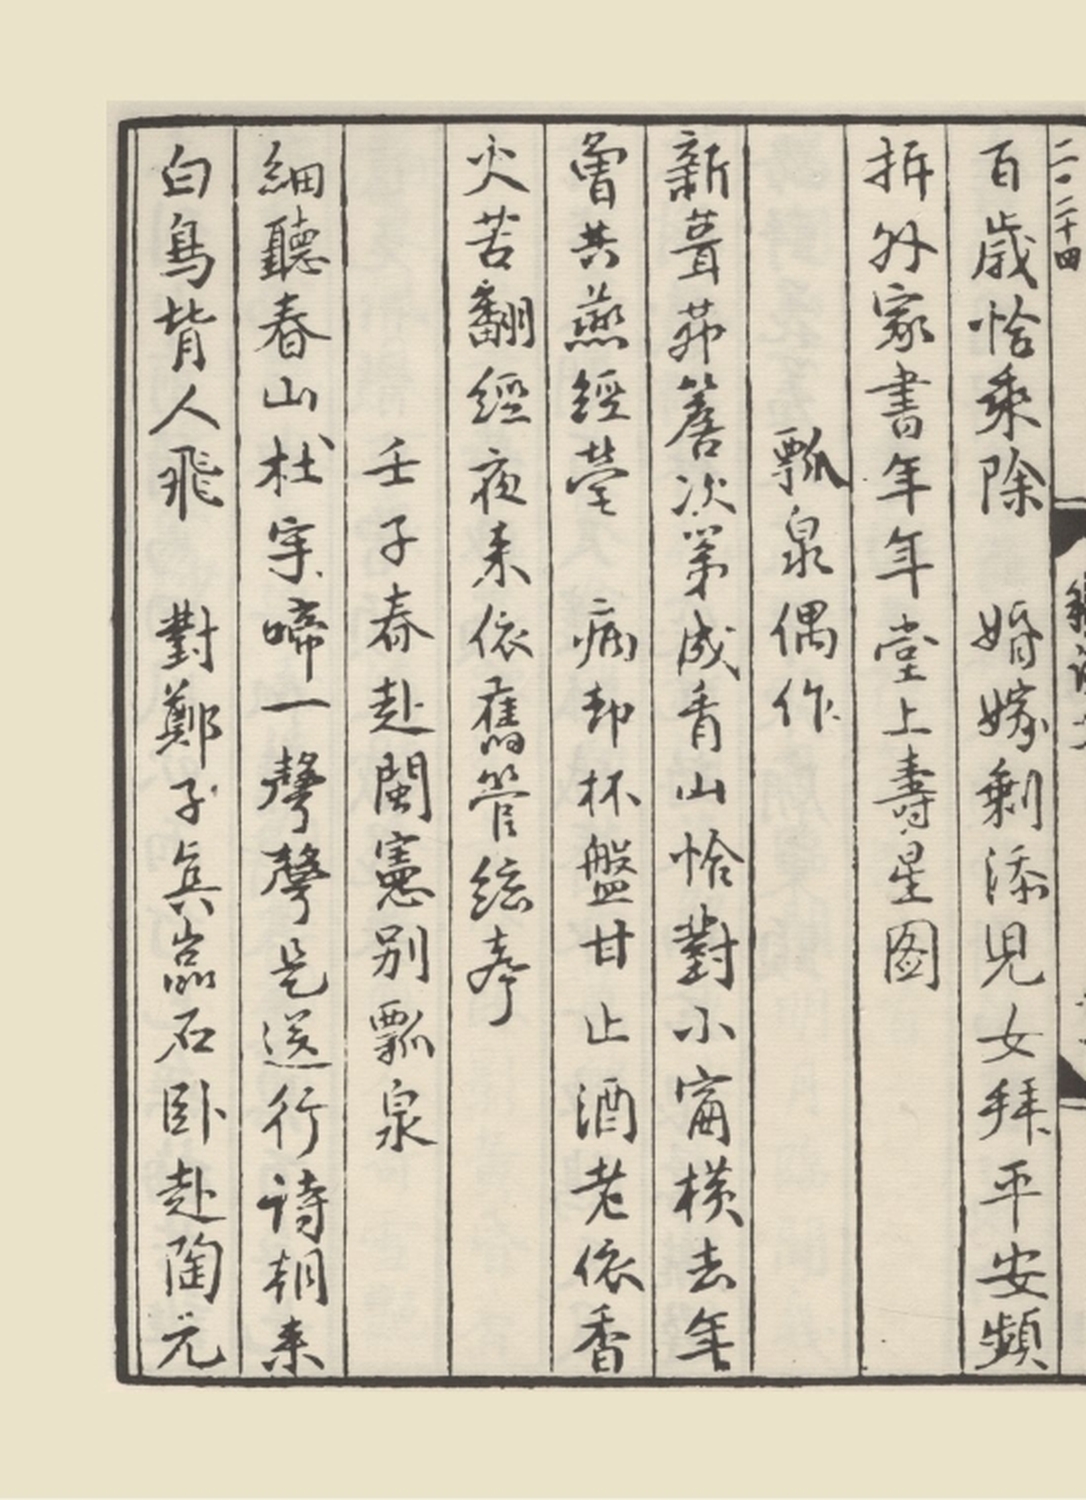 百歲恰乘除　婚嫁剩添兒女拜平安頻
拆外家書年年堂上壽星图
瓢泉偶作
新葺茆簷次第成青山恰對小窗橫去年
曾共燕經營　病却杯盤甘止酒老依香
火苦翻經夜来依舊管絃聲
壬子春赴閩憲别瓢泉
細聽春山杜宇啼一聲聲是送行诗朝来
白鳥背人飛　對鄭子真嵓石卧赴陶元